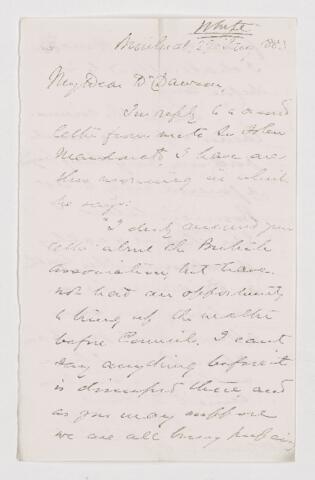 White
Montreal 27 Jany 1883
My Dear Dr Dawson,
In reply to a second
letter from me to Sir John
Macdonald, I have one
this morning in which
he says:
"I duly received your
letter about the British
Association, but have
not had an opportunity
to bring up the matter
before Council. I cant
say anything before it
is discussed there and
as you may suppose
we are all busy preparing